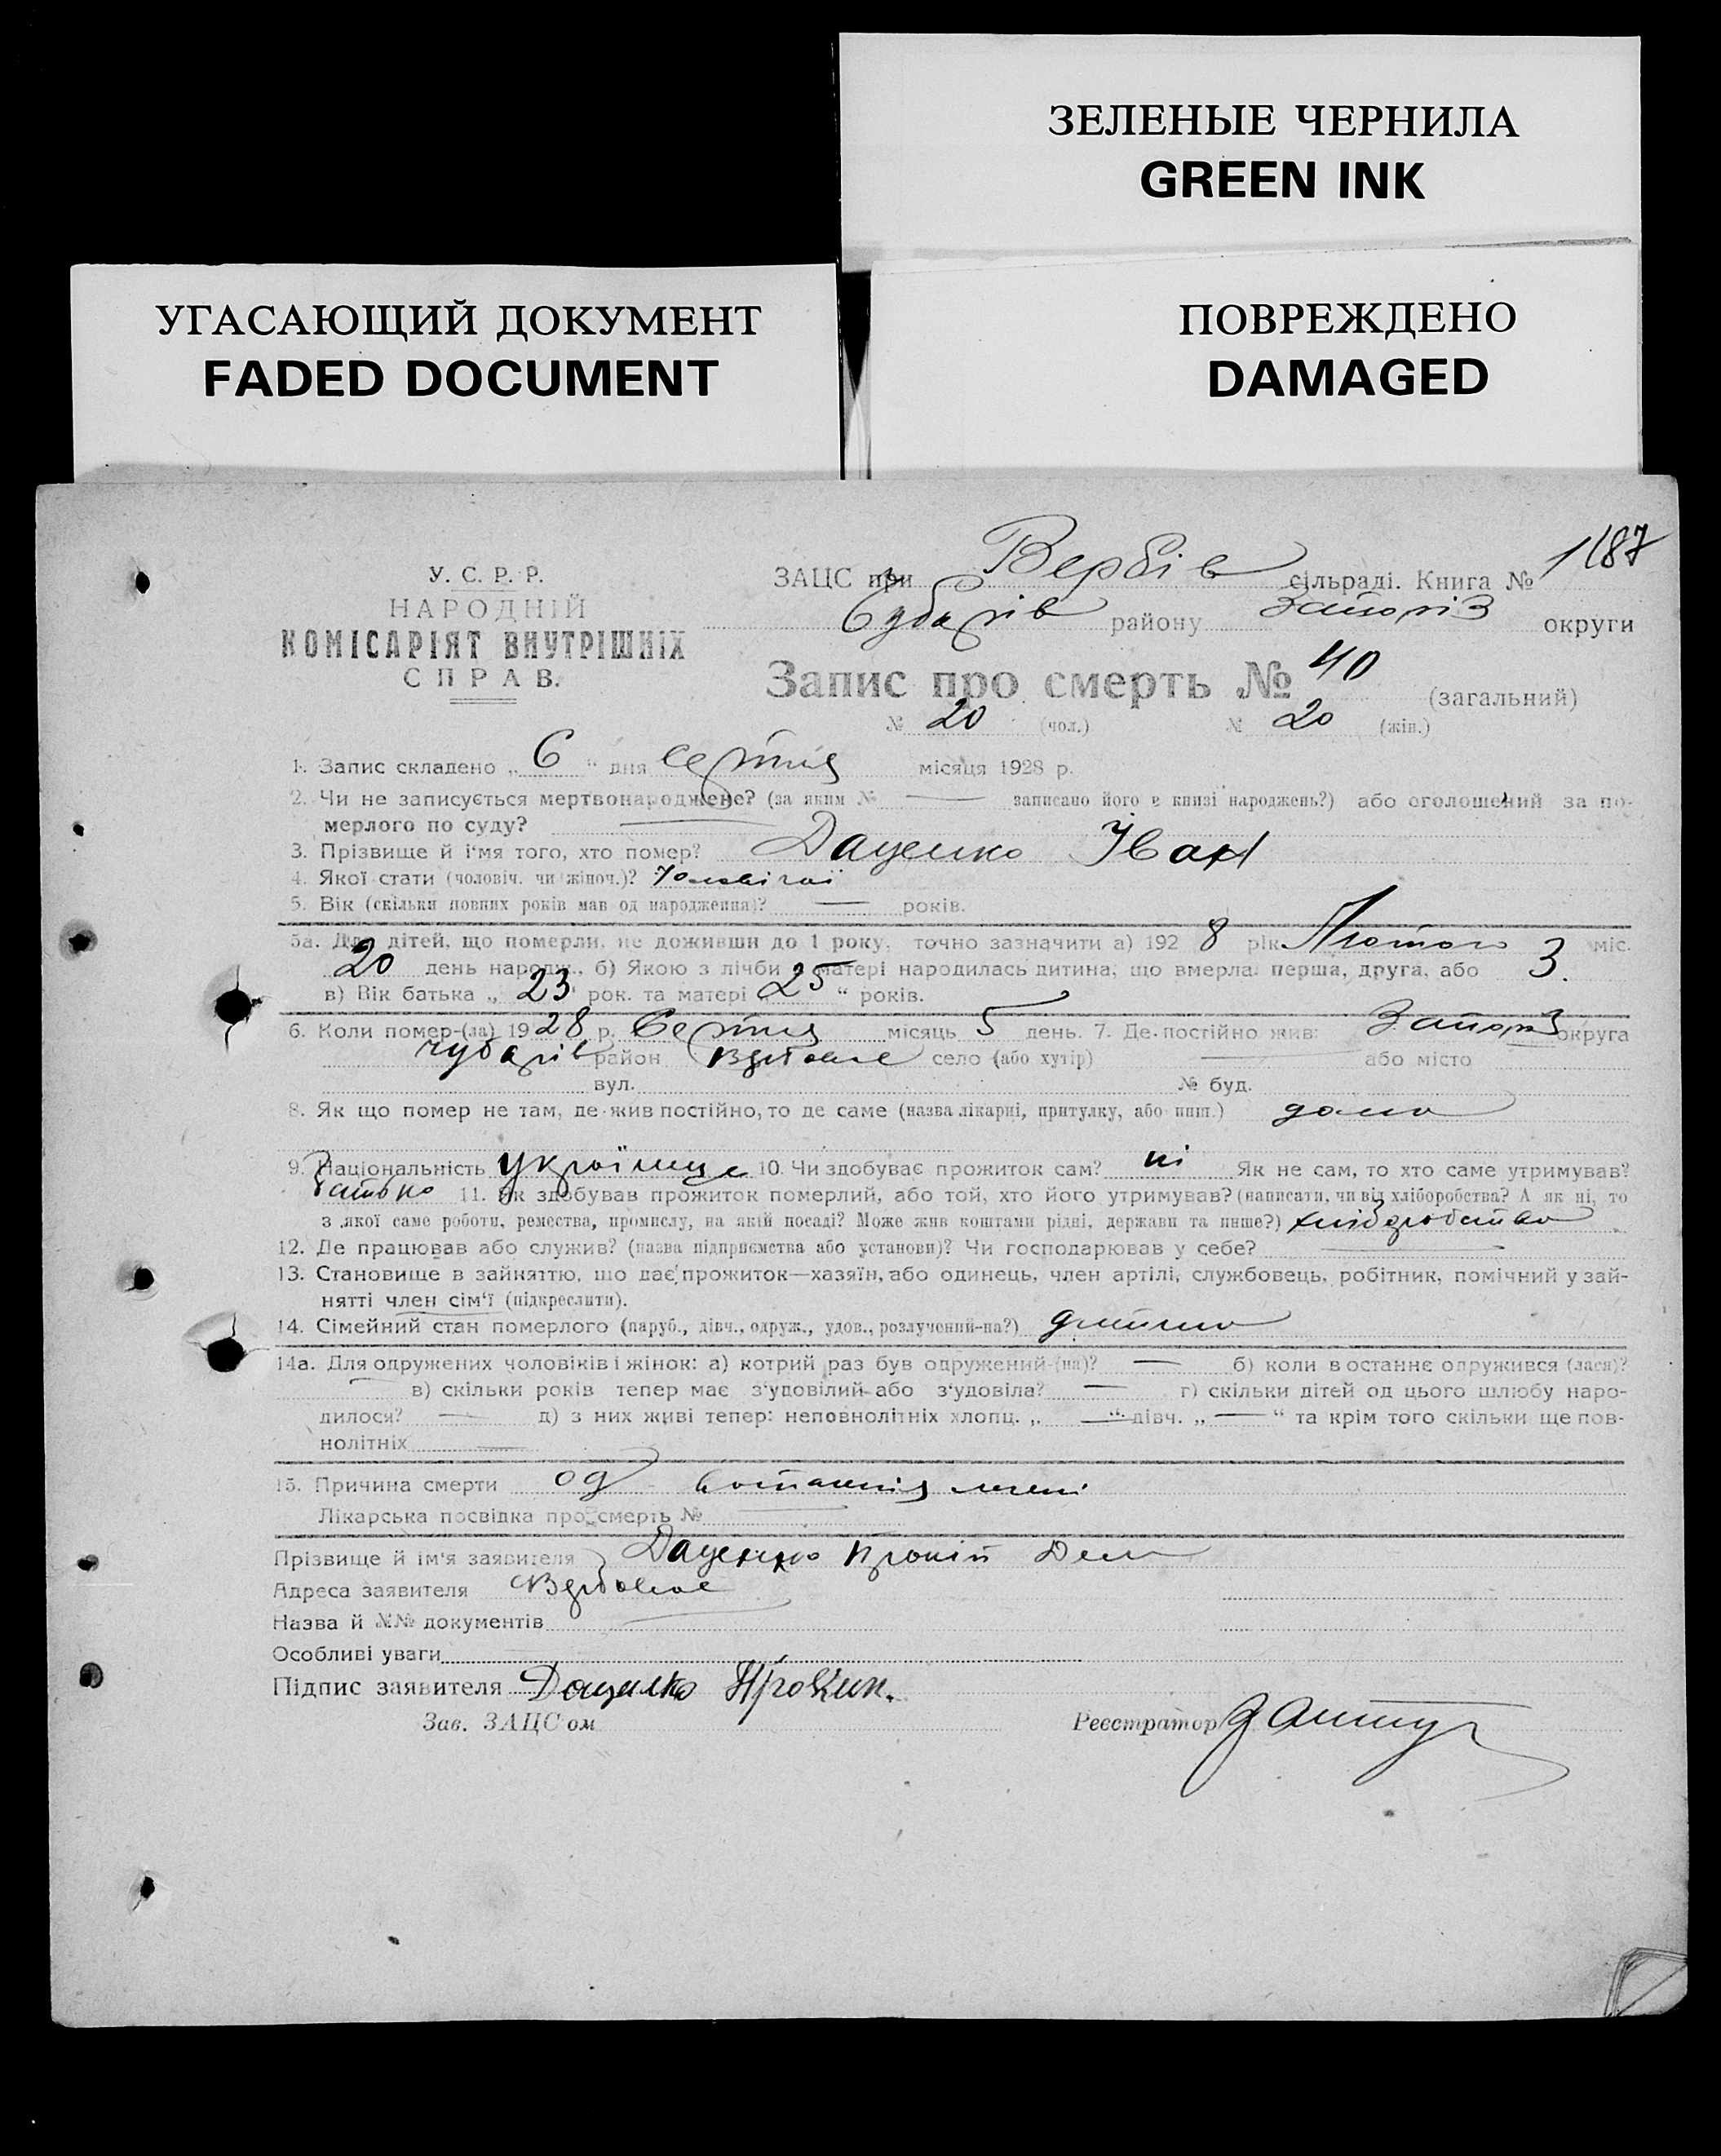 ЗЕЛЕНЫЕ ЧЕРНИЛА
GREEN INK
УГАСАЮЩИЙ ДОКУМЕНТ
FADED DOCUMENT
ПОВРЕЖДЕНО
DAMAGED
187
У. С. Р. Р.
НАРОДНІЙ
КОМІСАРІЯТ ВНУТРІШНІХ
СПРАВ.
ЗАЦС при Вербів сільраді. Книга № 1
району Запоріз округи
Запис про смерть № 40 (загальний)
№ 20 (чол.) № 20 (жін.)
1. Запис складено „ 6 “ дня місяця 1928 р.
2. Чи не записується мертвонароджене? (за яким № — записано його в книзі народжень?) або оголошений за по-
мерлого по суду? —
3. Прізвище й і'мя того, хто помер? Даценко Іван
4. Якої стати (чоловіч. чи жіноч.)? Чоловічої
5. Вік (скільки повних років мав од народження)? — років.
5а. Для дітей, що померли, не доживши до 1 року, точно зазначити а) 192 8 рік Лютого міс.
20 день народж., б) Якою з лічби у матері народилась дитина, що вмерла: перша, друга, або 3.
в) Вік батька „ 23 “ рок. та матері „ 25 “ років.
6. Коли помер-(ла) 1928 р. місяць 5 день. 7. Де постійно жив: Запоріз округа
Чубарів район Вербове село (або хутір) — або місто
вул. № буд.
8. Як що помер не там, де жив постійно, то де саме (назва лікарні, притулку, або инш.) дома
9. Національність українець 10. Чи здобував прожиток сам? ні Як не сам, то хто саме утримував?
батько 11. Як здобував прожиток померлий, або той, хто його утримував? (написати, чи від хліборобства? А як ні, то
з якої саме роботи, ремества, промислу, на якій посаді? Може жив коштами рідні, держави та инше?) хліборобство
12. Де працював або служив? (назва підприємства або установи)? Чи господарював у себе? —
13. Становище в зайняттю, що дає прожиток—хазяїн, або одинець, член артілі, службовець, робітник, помічний у зай-
нятті член сім'ї (підкреслити).
14. Сімейний стан померлого (паруб., дівч., одруж., удов., розлучений-на?) дитина
14а. Для одружених чоловіків і жінок: а) котрий раз був одружений-(на)? — б) коли в останнє одружився (лася)?
— в) скільки років тепер має з'удовілий або з'удовіла? — г) скільки дітей од цього шлюбу наро-
дилося? — д) з них живі тепер: неповнолітніх хлопц. „ — “ дівч. „ — “ та крім того скільки ще пов-
нолітніх —
15. Причина смерти од
Лікарська посвідка про смерть № —
Прізвище й ім'я заявителя Даценко Прокіп
Адреса заявителя Вербове
Назва й №№ документів —
Особливі уваги
Підпис заявителя Даценко Прокип.
Зав. ЗАЦС'ом Реєстратор